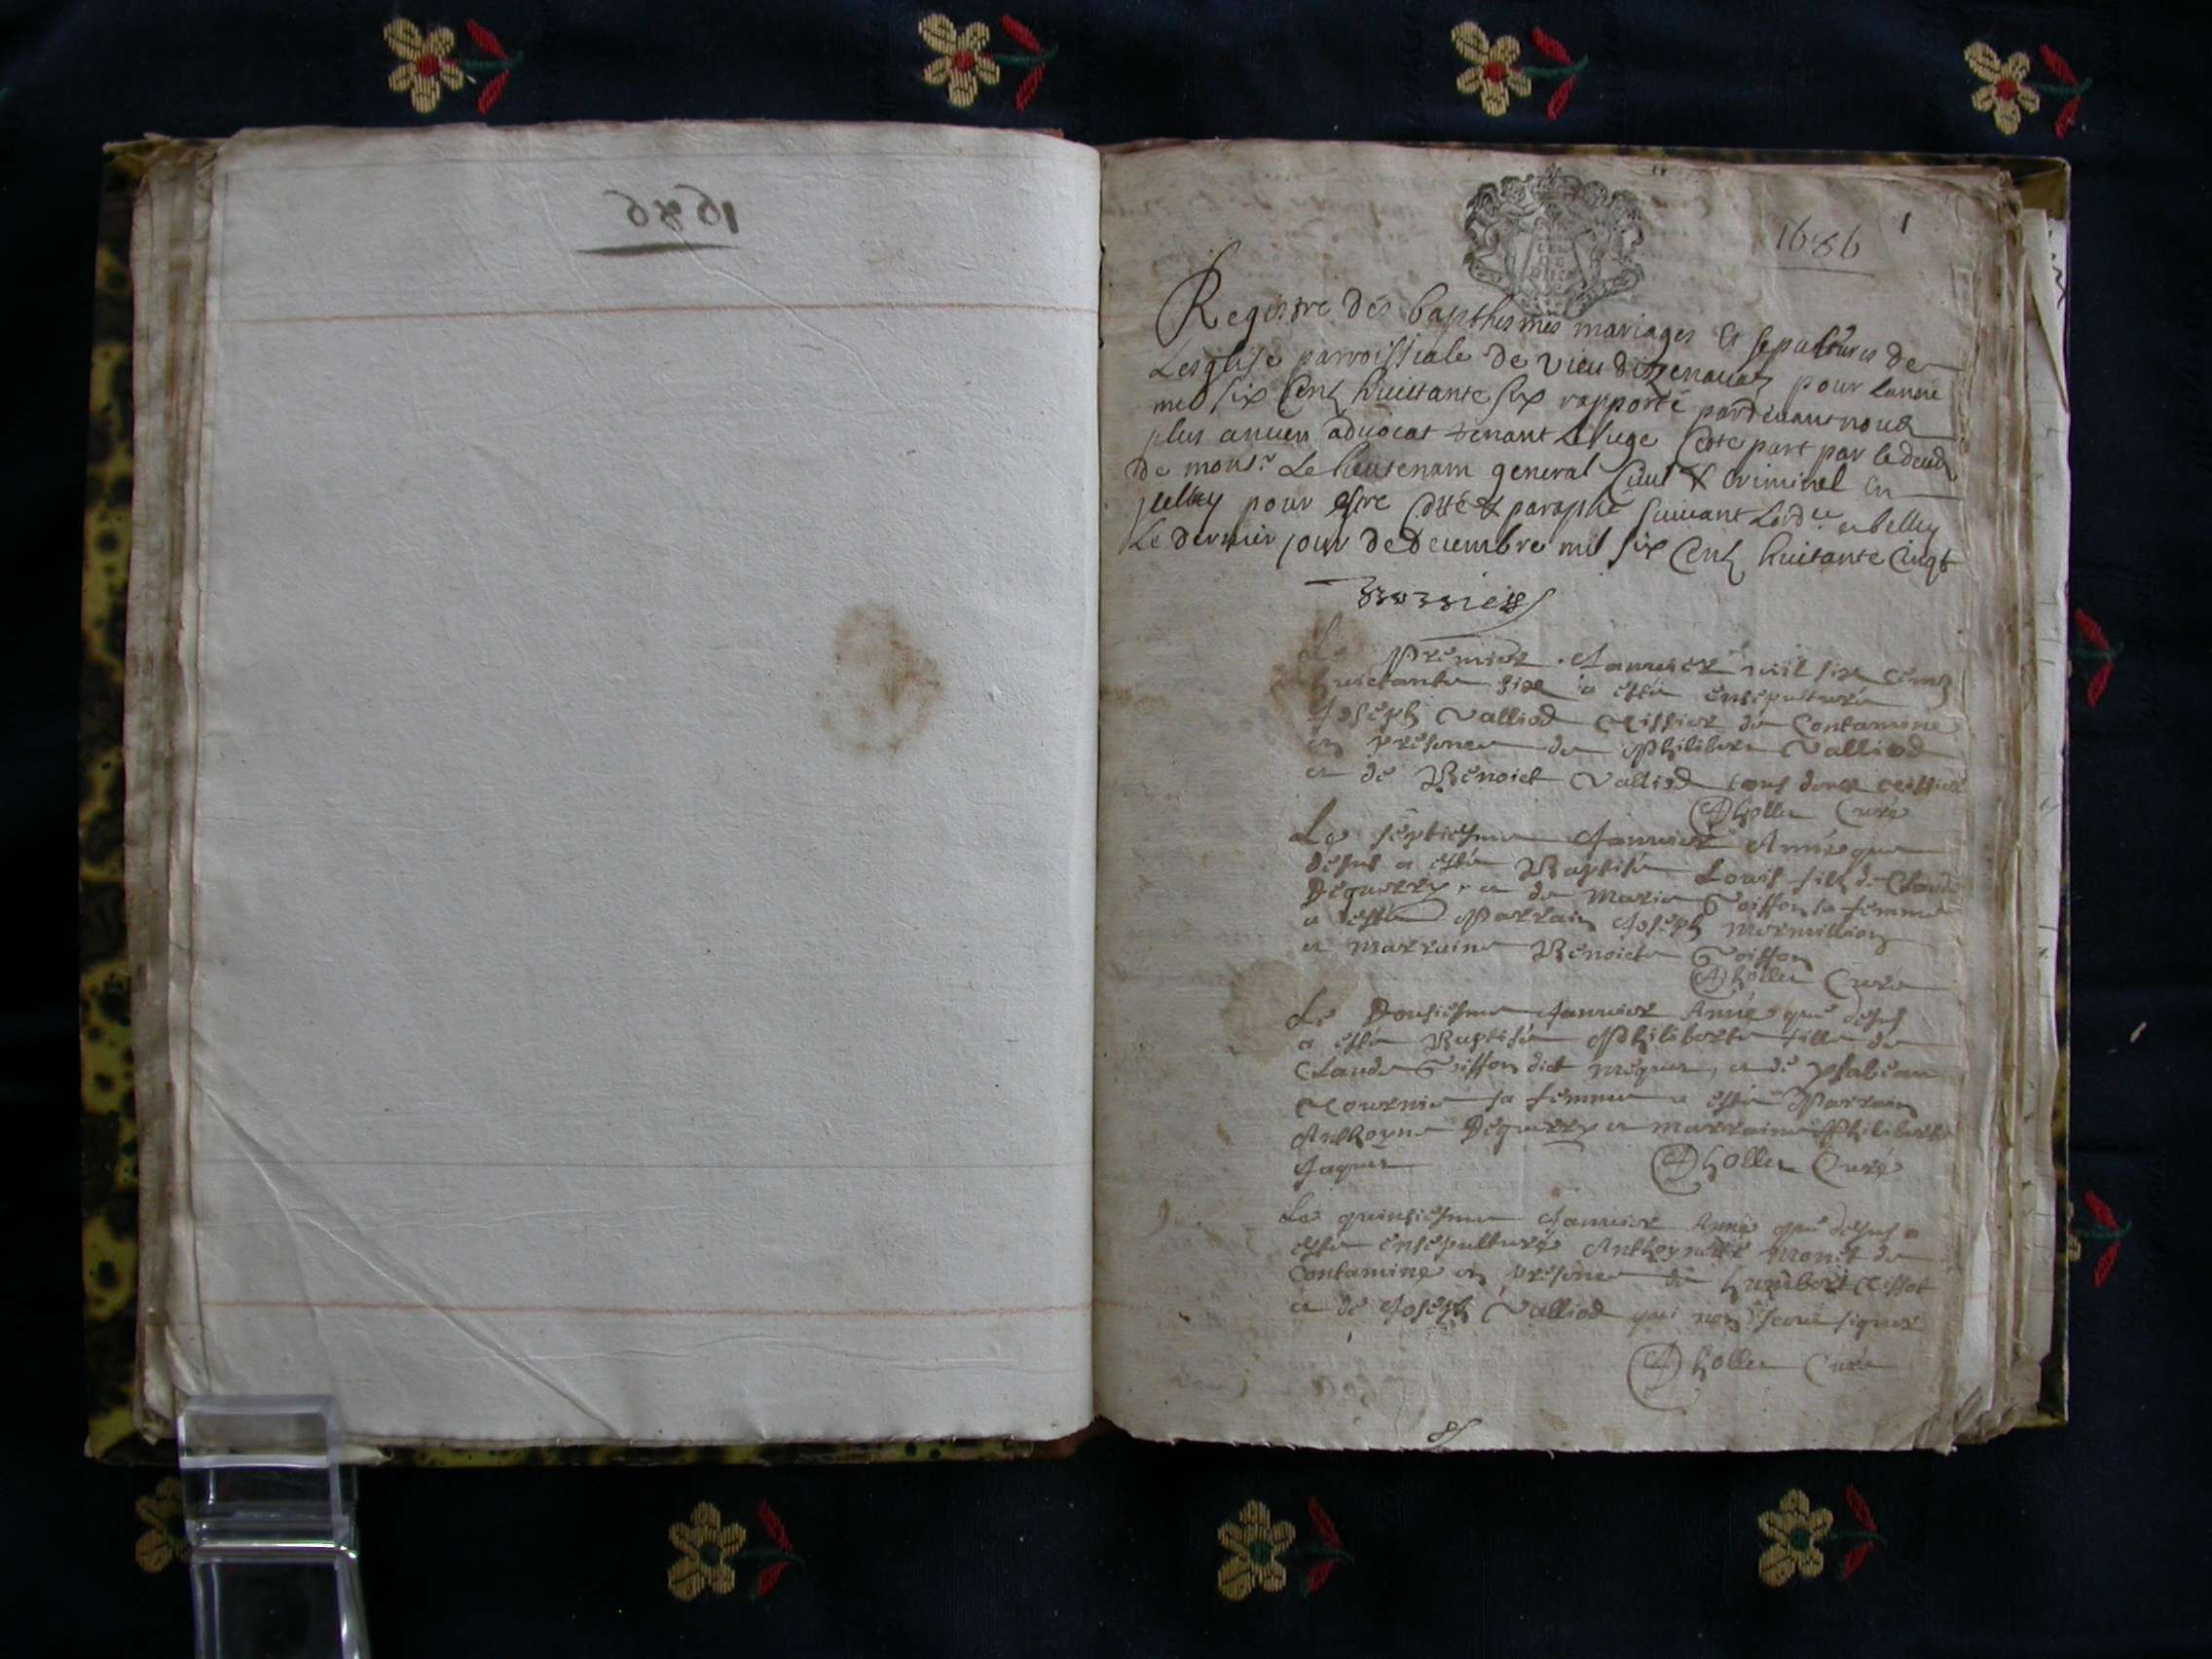 1686
1686
1
Registre des bapthesmes mariages Et sepultures de
Lesglise parroissiale de vieu dizenaua pour lannee
mil six Centz huictante six rapporté pardeuant nous
plus ancien aduocat tenant le siege Ceste part par le deced
de monsr. Le lieutenant general Ciuil & Criminel en
pour estre Cotté & paraphé suiuant lordce a belley
Le dernier jour de decembre mil six Centz huitante Cinqt
Le Premier Januier mil six cent
huictante six a esté ensepulturé
Joseph Valliod Tissier de Contamine
en presence de Philibert Valliod
et de Benoict Valliod tous deux tissier
Curé
Le septiesme Januier Année que
dessus a esté Baptisé Louis filz de Claude
Dequerry et de Marie Goiffon sa femme
a esté Parrain Joseph Mermillion
et Marraine Benoicte Goiffon
Curé
Le Douziesme Januier Année que dessus
a esté Baptisée Philiberte fille de
Claude Goiffon dict et de ysabeau
sa femme a esté Parrain
Anthoyne Dequerry et marraine Philiberte
Jaques Curé
Le quinziesme Januier Année que dessus a
esté ensepulturé Anthoynette Monet de
Contamine en presence de humbert
et de Joseph Valliod qui nont sceu signer
Curé